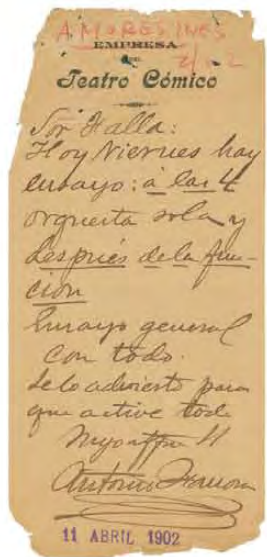 AMORES INES
2/02
EMPRESA
DEL
Teatro Cómico
Sor Falla:
Hoy Viernes hay
ensayo: á las 4
orquesta sola y
después de la fun-
ción
Ensayo general
con todo.
Se lo advierto para
que active todo
Antonio
11 ABRIL 1902